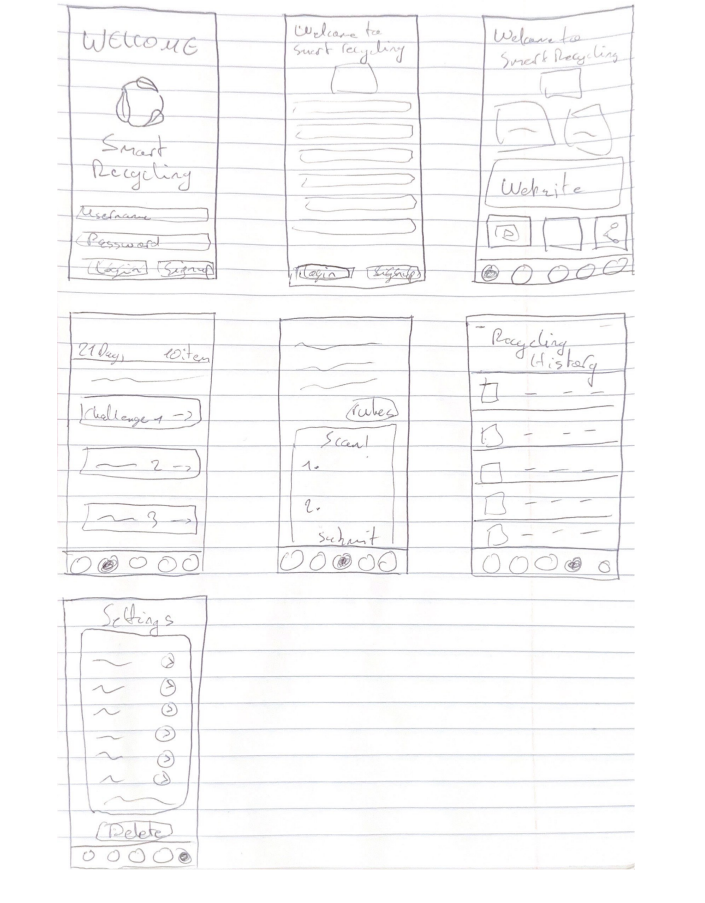 WELCOME
Smart
Recycling
Username
Password
Login Signup
Welcome to
smart recycling
Login Signup
Welcome to
Smart Recycling
Website
21 Days 10 item
Challenge 1
2
3
rules
Scan!
1.
2.
submit
Recycling
History
Settings
Delete